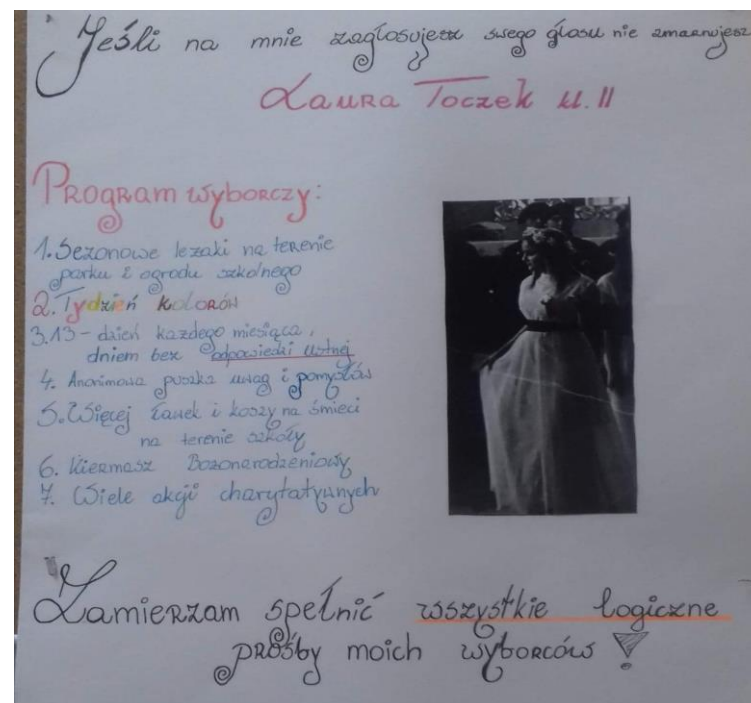 Jeśli na mnie zagłosujesz swego głosu nie zmarnujesz
Laura Toczek kl. II
Program wyborczy:
1. Sezonowe leżaki na terenie
parku i ogrodu szkolnego
2. Tydzień kolorów
3. 13-dzień każdego miesiąca,
dniem bez odpowiedzi ustnej
4. Anonimowa puszka uwag i pomysłów
5. Więcej ławek i koszy na śmieci
na terenie szkoły
6. Kiermasz Bożonarodzeniowy
7. Wiele akcji charytatywnych
Zamierzam spełnić wszystkie logiczne
prośby moich wyborców!